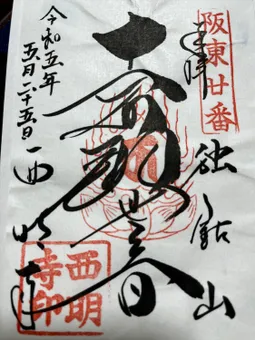 阪東廿番
奉拝
独鈷山
十一面観世音
令和五年
五月二十五日
西明寺
西明
寺印